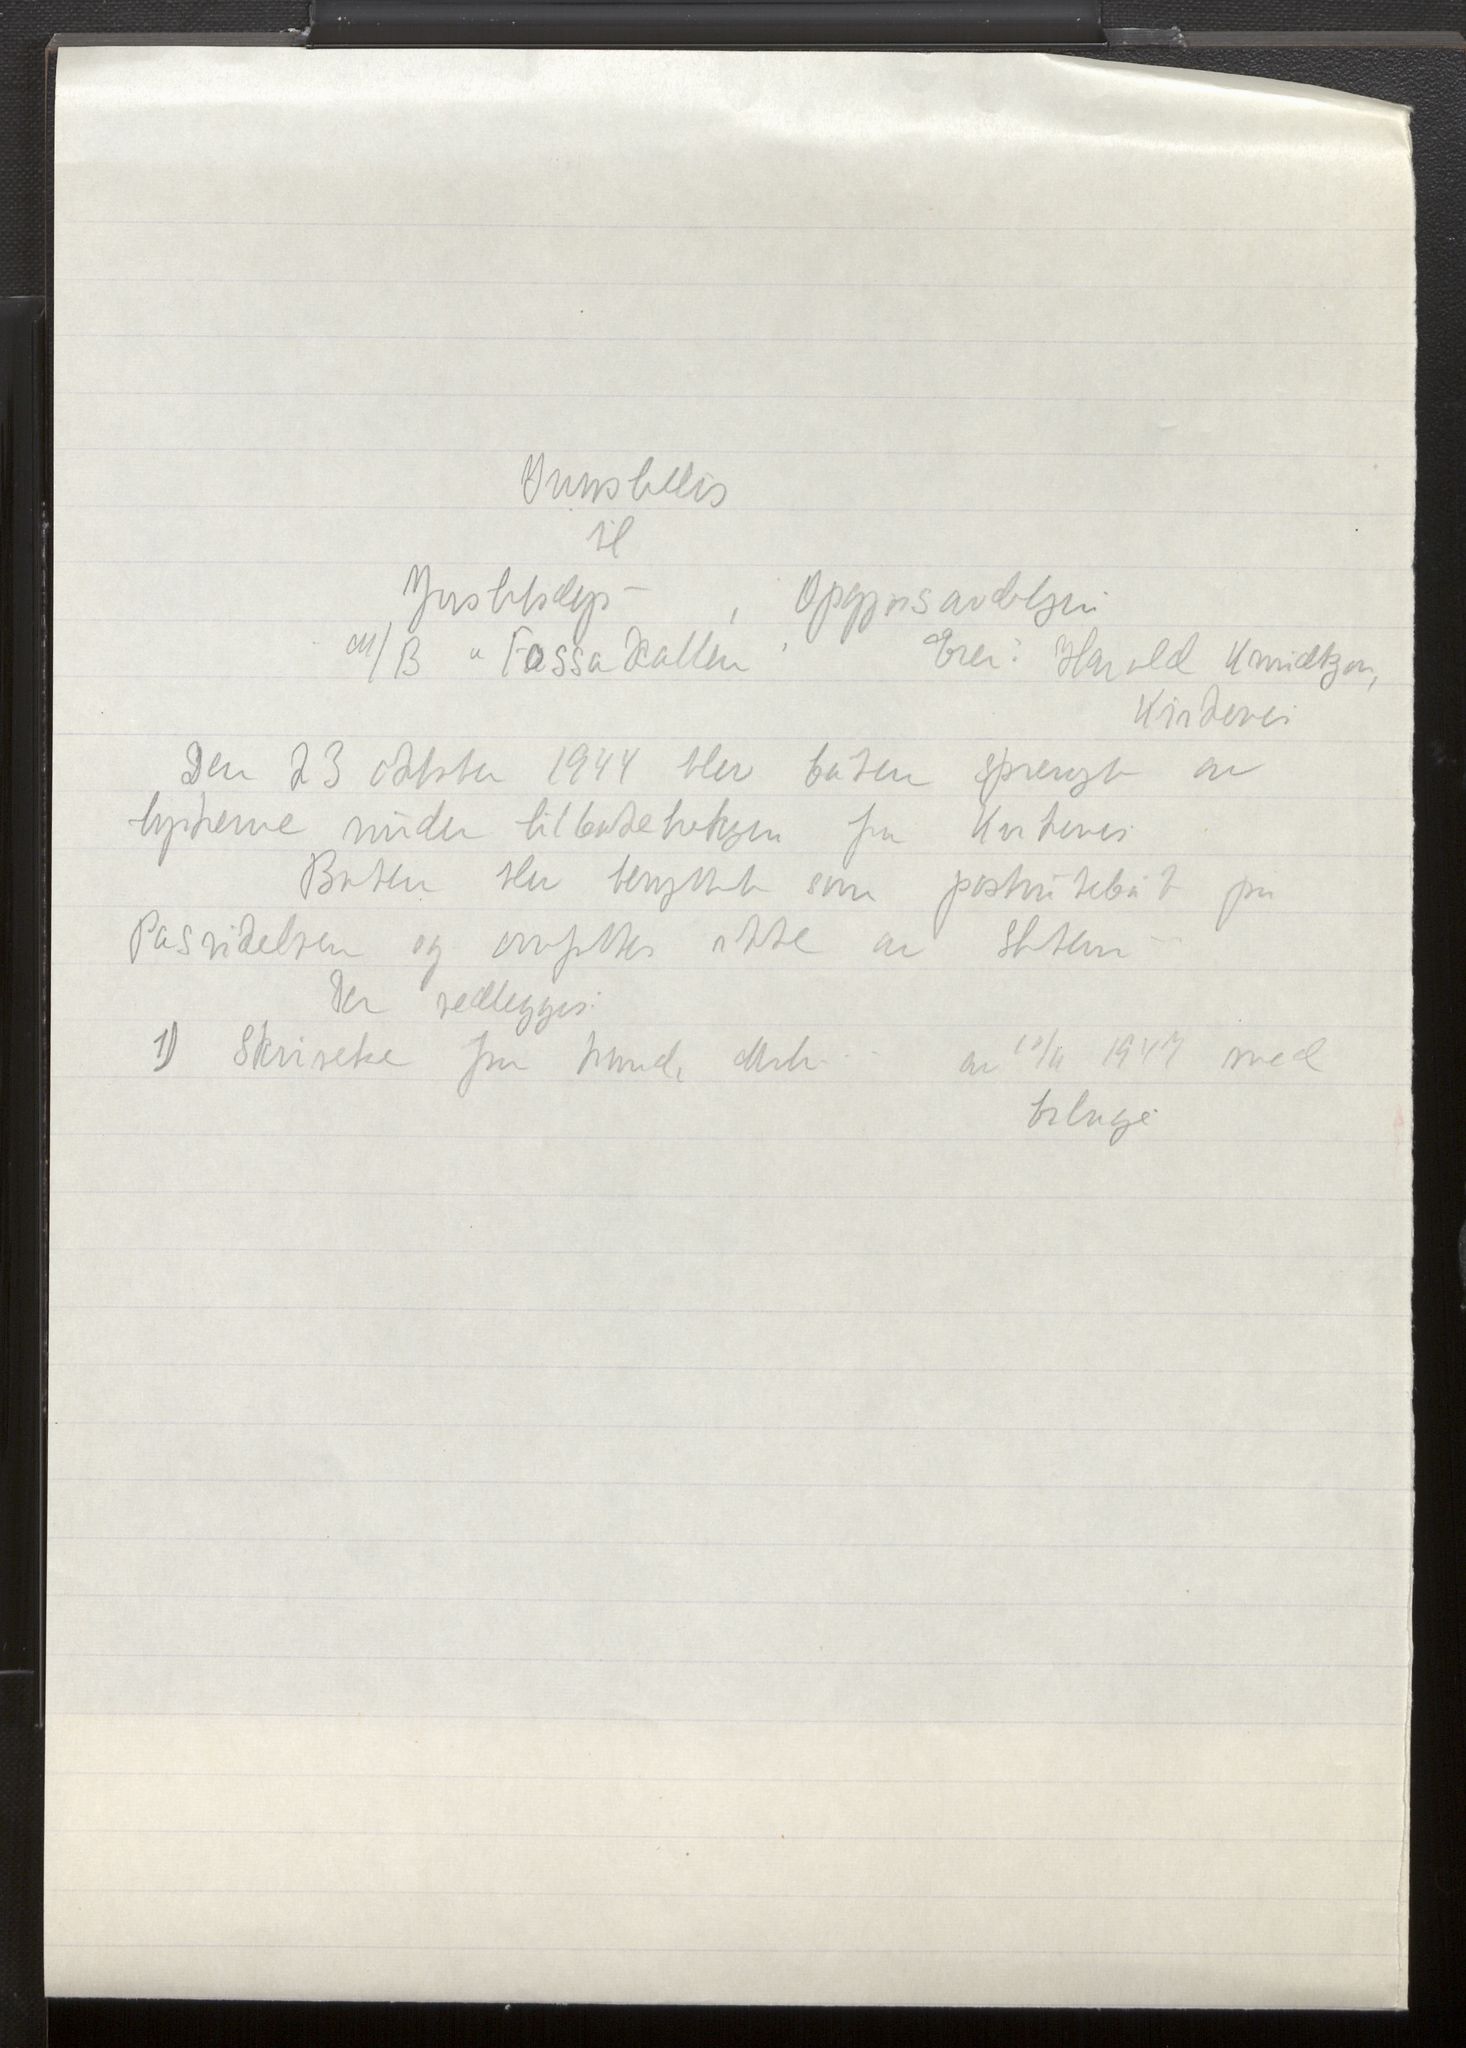 Oversendes
til
Justisdep. , Oppgjørsavdelingen
M/B "Fossakallen" Eier: Harald Knudtzon,
Kirkenes
Den 23 oktober 1944 blev båten sprengt av
tyskerne under tilbaketoksjen fra Kirkenes
Båten blev benyttet som postrutebåt på
Pasvikelven og omfattes ikke av
Der vedlegges:
1) Skrivelse fra av 10/11 1947 med
bilage